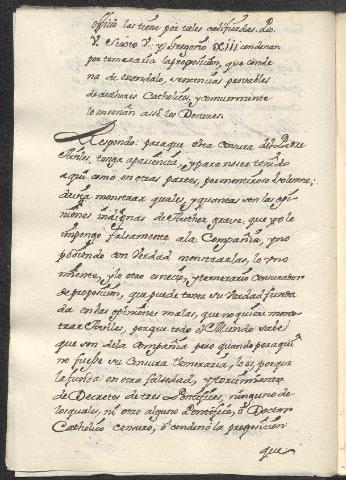 officio las tiene por tales calificadas. Pio
V. Sixto V. y Gregorio XIII condenan
por temeraria la proposición, que conde
na de escandalo, sentencias probables
de authores Catholicos, y comunmente
lo enseñan assi los Doctores.
Respondo: para que esta censura del Padre
tenga apariencia, y para no ser tenido
aqui como en otras partes, por mentiroso solemne;
devia monstrar quales, y quantas son las opi-
niones indignas de Author grave, que yo le
impongo falsamente a la Compañia, y no
podiendo con verdad monstrarlas, lo uno
miente, y lo otro es necio, y temerario censurador
de proposicion, que puede tener su verdad funda
da en las opiniones malas, que no quiere mons-
trar porque todo el Mundo sabe
que son de la Compañia pero quando por aqui
no fuesse su Censura temeraria, lo es, porque
la funda en otra falsedad, y torcimiento
de Decretos de tres Pontifices, ninguno de
los quales, ni otro alguno Pontifice, o Doctor
Catholico censuro, o condenó la proposicion
que